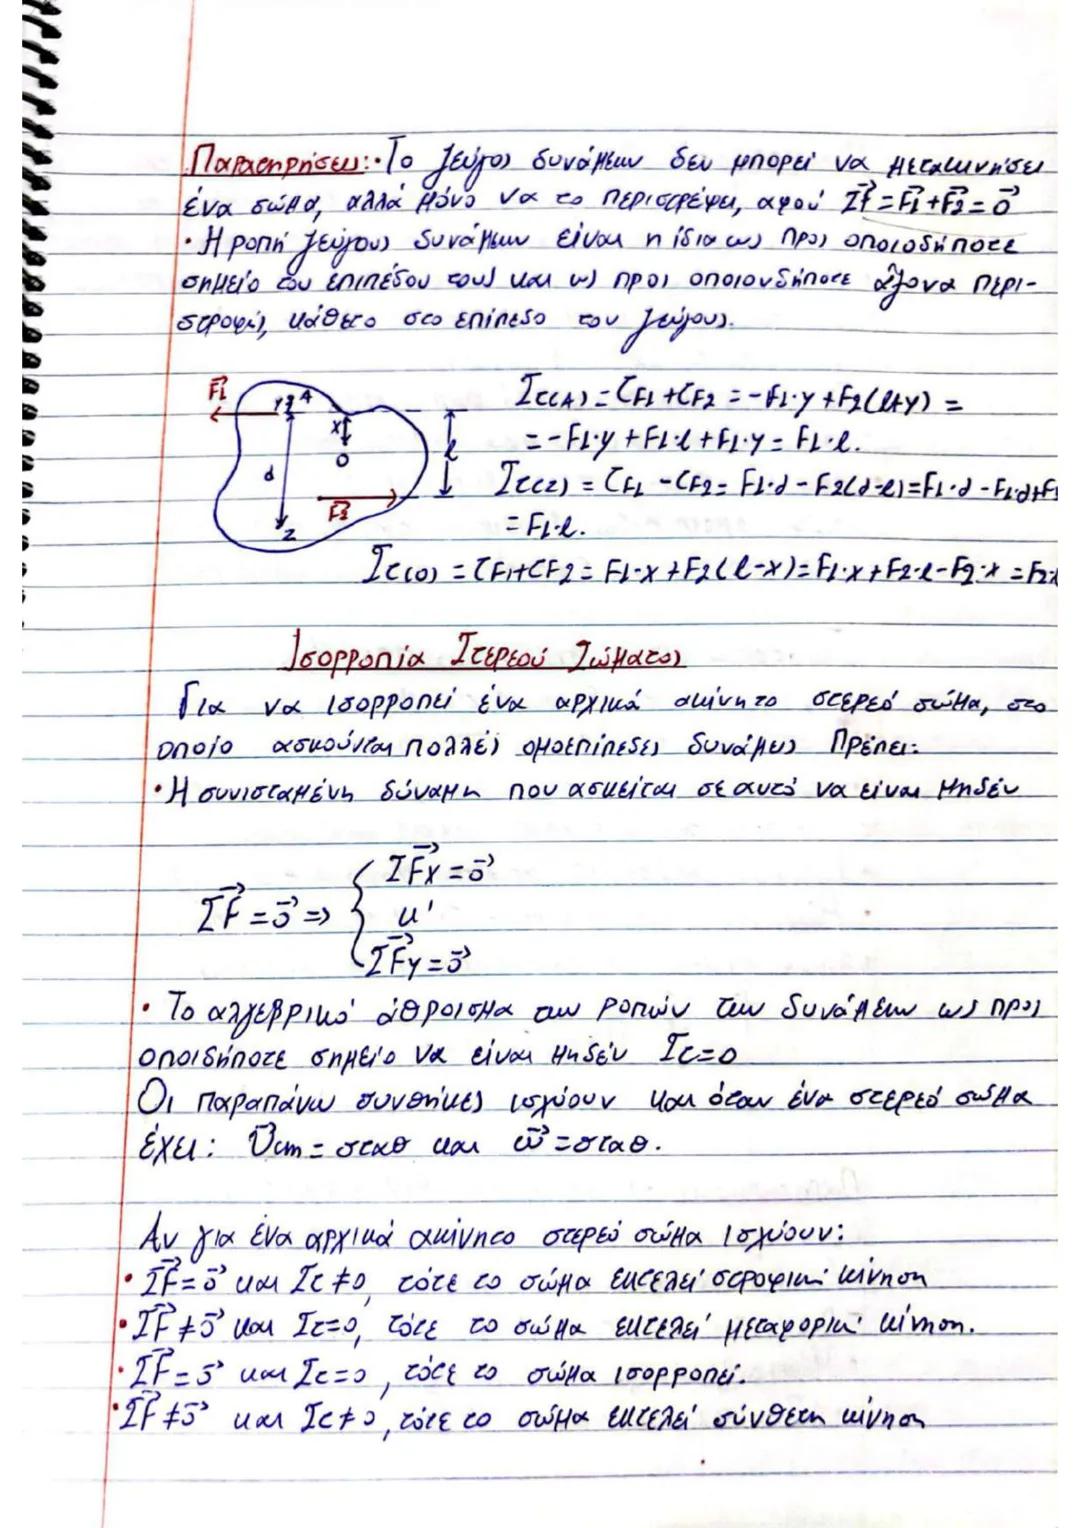 Παρατηρήσεις: · Το ζεύγος δυνάμεων δεν μπορεί να μετακινήσει
ένα σώμα, αλλά μόνο να το περιστρέψει, αφού ΣF⃗ = F⃗1 + F⃗2 = 0⃗
· Η ροπή ζεύγους δυνάμεων είναι η ίδια ως προς οποιοδήποτε
σημείο του επιπέδου τους και ως προς οποιονδήποτε άξονα περι-
στροφής, κάθετο στο επίπεδο του ζεύγους.
F⃗1
y
A
x
O
d
l
F⃗2
Z
Στ(A) = τF1 + τF2 = -F1·y + F2(l+y) =
= -F1·y + F1·l + F1·y = F1·l.
Στ(Z) = τF1 - τF2 = F1·d - F2(d-l) = F1·d - F1·d + F1
= F1·l.
Στ(O) = τF1 + τF2 = F1·x + F2(l-x) = F1·x + F2·l - F2·x = F2·l
Ισορροπία Στερεού Σώματος
Για να ισορροπεί ένα αρχικά ακίνητο στερεό σώμα, στο
οποίο ασκούνται πολλές ομοεπίπεδες δυνάμεις πρέπει:
· Η συνισταμένη δύναμη που ασκείται σε αυτό να είναι μηδέν
ΣF⃗x = 0⃗
ΣF⃗ = 0⃗ => { κ'
ΣF⃗y = 0⃗
· Το αλγεβρικό άθροισμα των ροπών των δυνάμεων ως προς
οποιδήποτε σημείο να είναι μηδέν Στ=0
Οι παραπάνω συνθήκες ισχύουν και όταν ένα στερεό σώμα
έχει: υ⃗cm = σταθ και ω⃗ = σταθ.
Αν για ένα αρχικά ακίνητο στερεό σώμα ισχύουν:
· ΣF⃗ = 0⃗ και Στ ≠ 0, τότε το σώμα εκτελεί στροφική κίνηση
· ΣF⃗ ≠ 0⃗ και Στ=0, τότε το σώμα εκτελεί μεταφορική κίνηση.
· ΣF⃗ = 0⃗ και Στ=0, τότε το σώμα ισορροπεί.
· ΣF⃗ ≠ 0⃗ και Στ ≠ 0, τότε το σώμα εκτελεί σύνθετη κίνηση